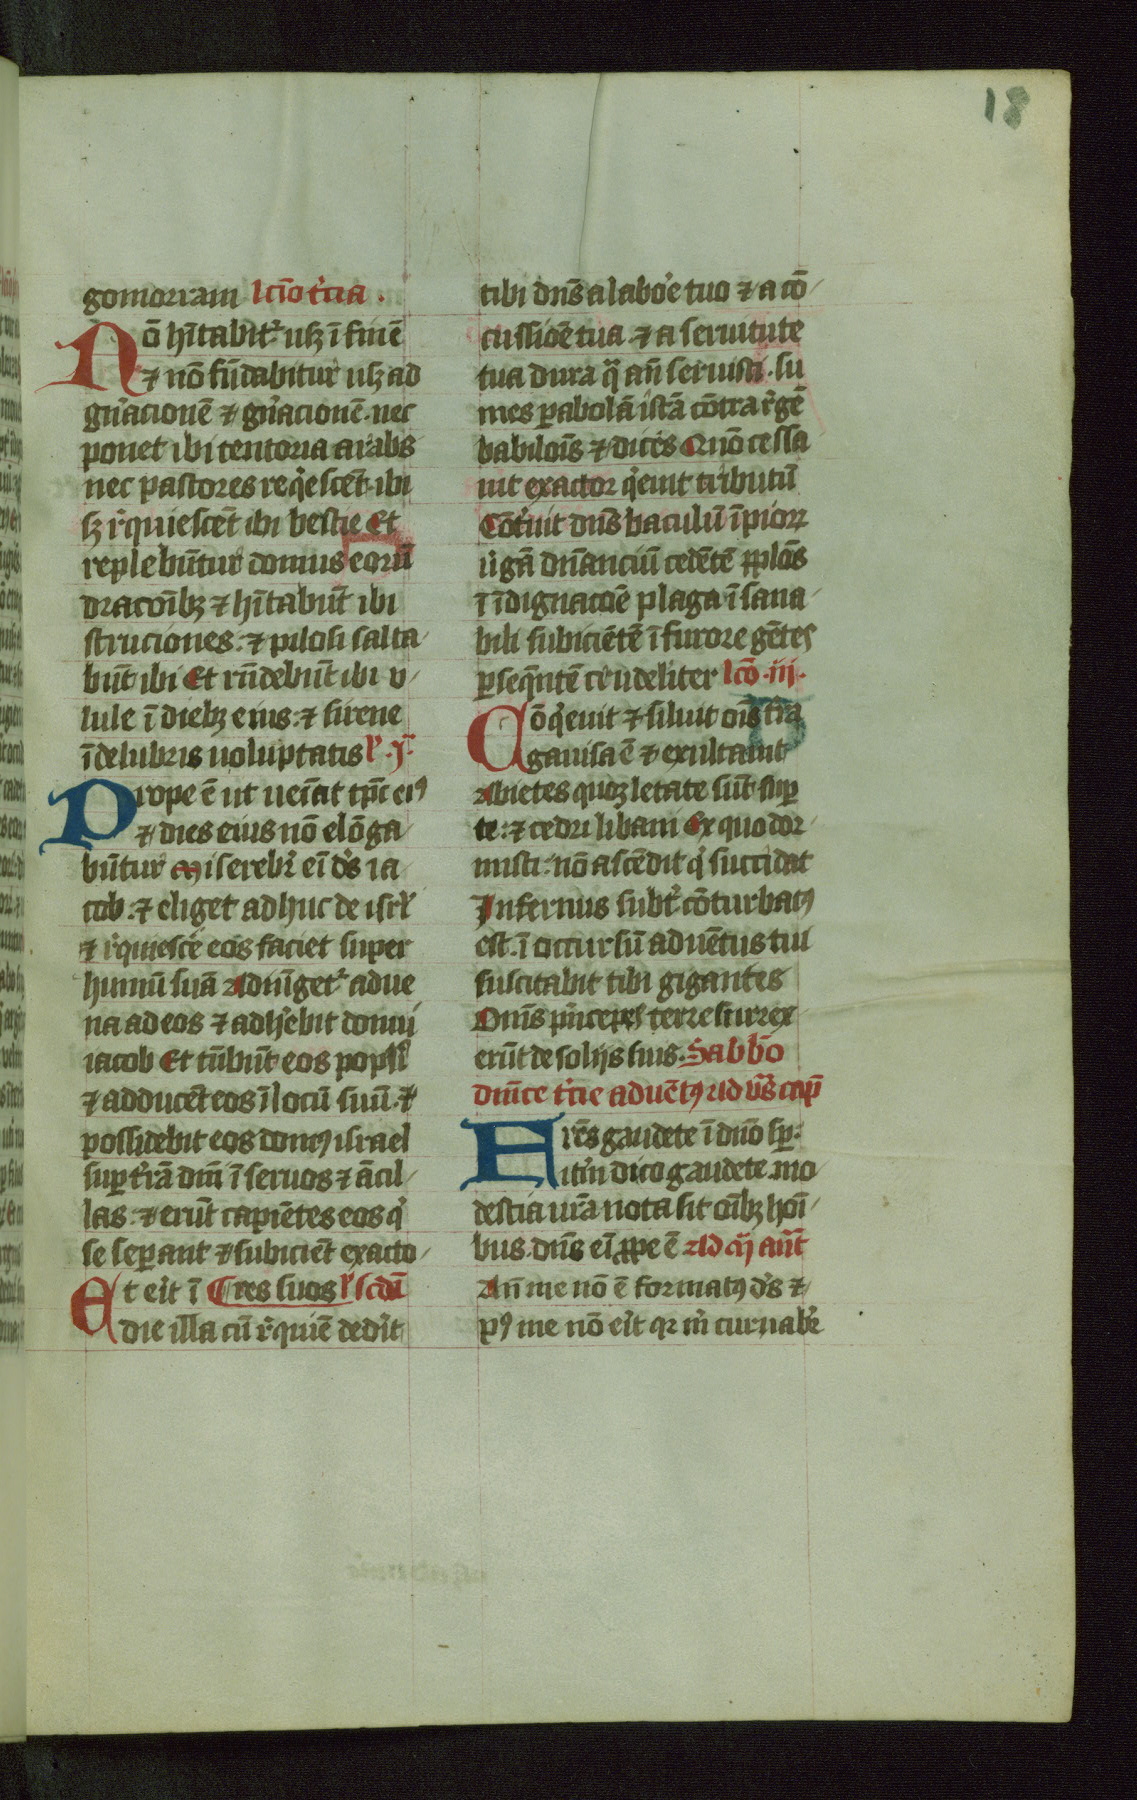 18
gomorram lcõo t'cia .
Nõ hĩtabit' usꝫ ĩ finẽ
⁊ nõ fũdabitur usꝫ ad
gñ'acionẽ ⁊ gñ'acionẽ. nec
ponet ibi tentoria arabs
nec pastores reqͥescẽt ibi
sꝫ r'quiescẽt ibi bestie Et
replebũtur domus eorũ
dracõĩbꝫ ⁊ hĩtabũt ibi
struciones: ⁊ pilosi salta
bũt ibi Et rñdebũt ibi v
lule ĩ diebꝫ eius: ⁊ sirene
ĩ delubris uoluptatis
Prope ẽ ut ueĩat tp̃c eiꝰ
⁊ dies eius nõ elõga
bũtur Miserebr' eĩ d's ia
cob. ⁊ eliget adhuc de isrl'
⁊ r'quiesce' eos faciet super
humũ suã Adiũget' adue
na ad eos ⁊ adh'ebit domui
iacob Et tñbũt eos popl'i
⁊ adducẽt eos ĩ locũ suũ. ⁊
possidebit eos domꝰ israel
suꝑ t'rã dñi ĩ seruos ⁊ ãcil
las: ⁊ erũt capiẽtes eos qͥ
se ceperant ⁊ subicĩet exacto
res suos l' scd'a
Et eĩt ĩ
die illa cũ r'quiẽ ded'it
tibi dñs a labo'e tuo ⁊ a cõ
cussiõe tua ⁊ a seruitute
tua dura qͣ añ seruisti. su
mes ꝑabolã istã cõtra r'gẽ
babilõis ⁊ dices Quõ cessa
uit exactor qͥeuit tributũ
Cõt'uit dñs baculũ ĩpiorꝝ
ũgã dñanciũ cedẽtẽ pp̃lõs
ĩ ĩdignacõe plaga ĩsana
bili subiciẽtẽ ĩ furore gẽtes
ꝑseqñtẽ crudeliter lcõ .iij.
Cõqͥeuit ⁊ siluit oĩs t'ra
gauisa ẽ ⁊ exultauit
Abietes quoꝫ letate sũt suꝑ
te: ⁊ cedri libani Ex quo dor
misti: nõ ascẽdit qͥ succidat
Infernus subt' cõturbatꝰ
est. ĩ occursũ aduẽtus tui
suscitabit tibi gigantes
Omĩs p̃nceps terre surrex
erũt de solijs suis. Sabb̃o
dñice t'cie aduẽtꝰ ad v's cap̃
Fres gaudete ĩ dño sp̃.
it'm dico gaudete. mo
destia ur̃a nota sit oĩbꝫ hoĩ
bus. dñs eĩ ꝓpe ẽ Ad cij añt
An me nõ ẽ formatꝰ d's ⁊
pꝰ me nõ eĩt qͥ m̃ curuabr'